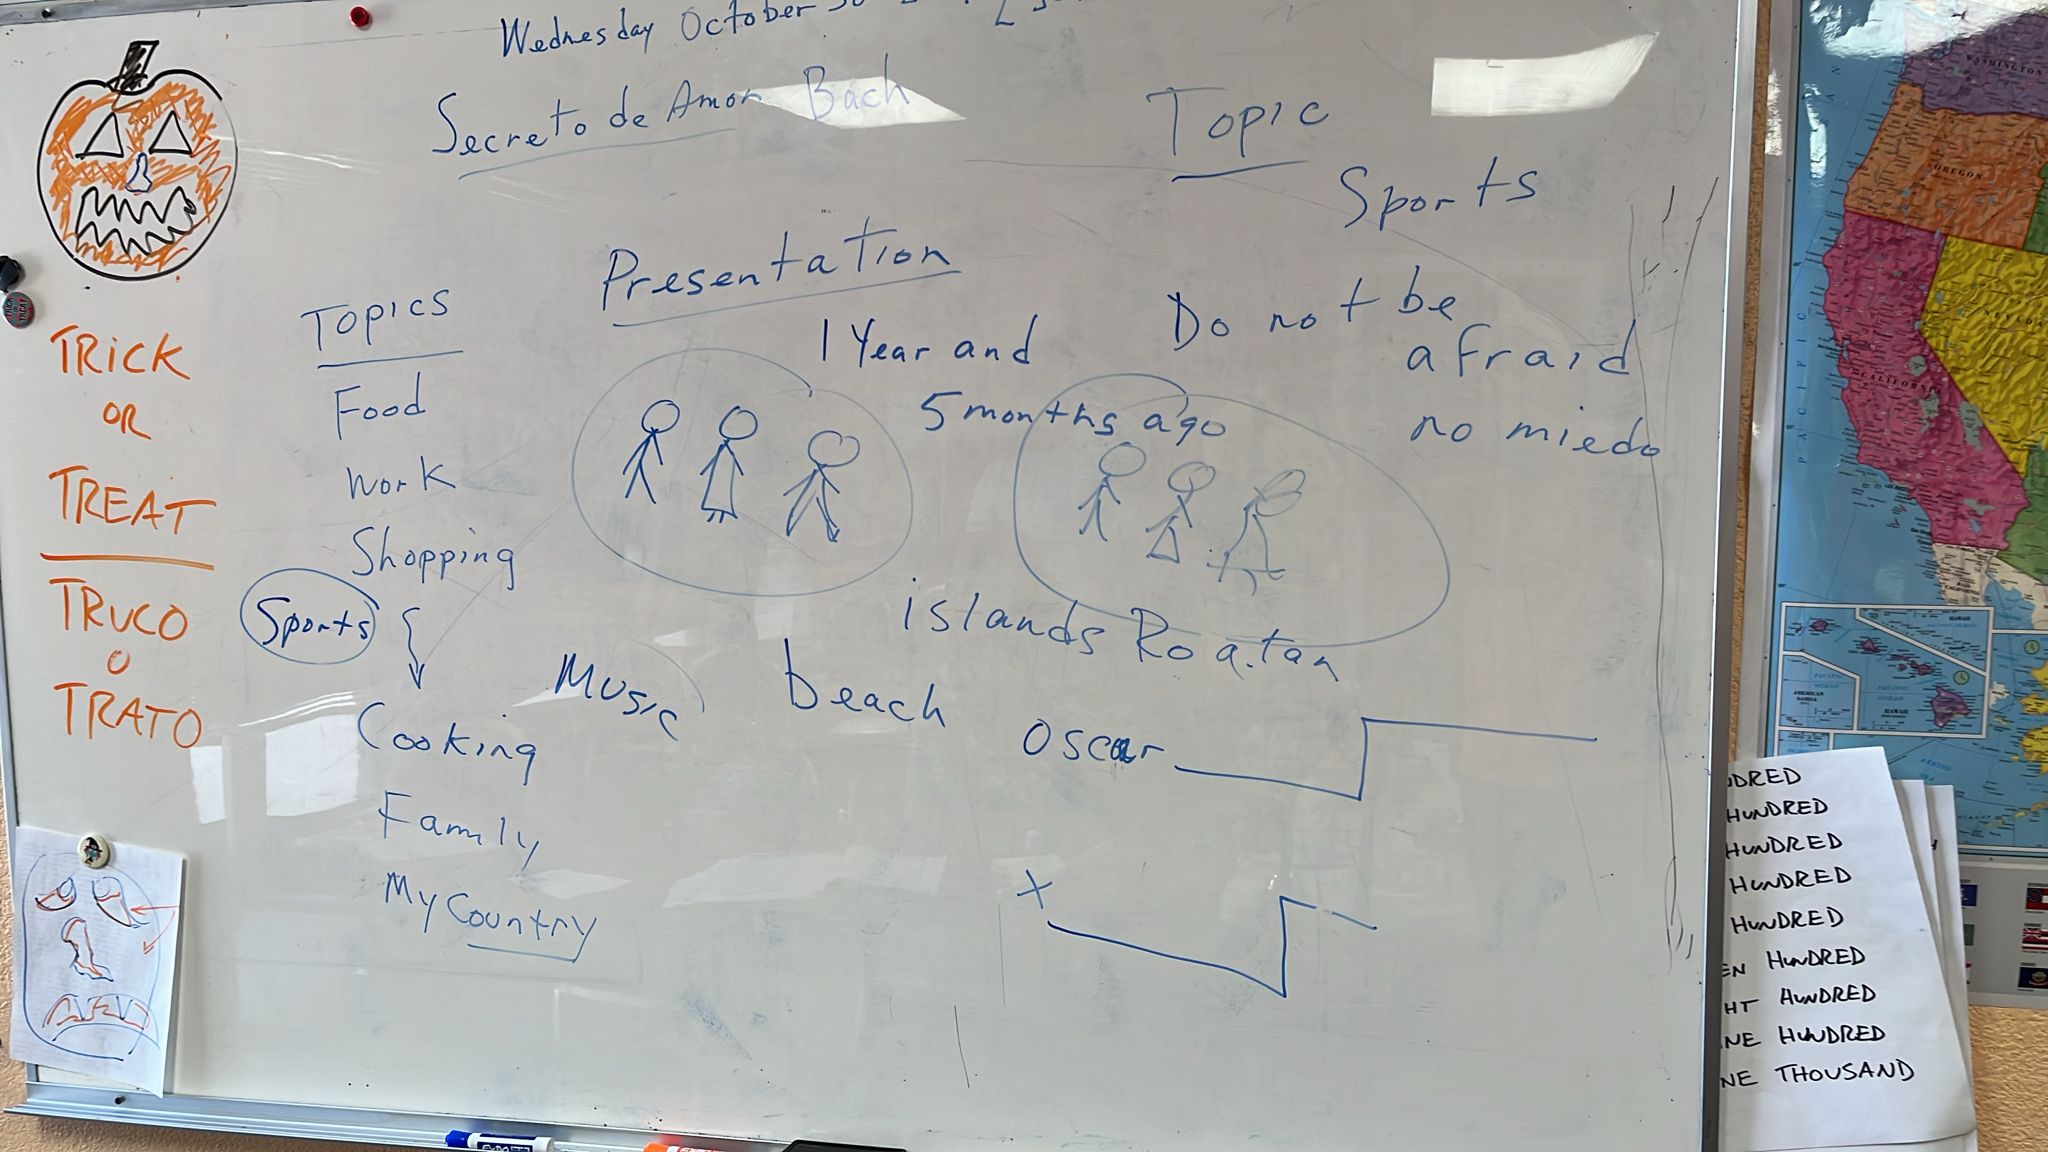 Wednesday October 30
Secreto de Amor Bach
Topic
Sports
Presentation
1 Year and
5 months ago
Do not be
afraid
no miedo
TRICK
OR
TREAT
TRUCO
O
TRATO
Topics
Food
Work
Shopping
Sports
Cooking
Music
Family
My Country
beach
islands Roatan
Oscar
X
WASHINGTON
OREGON
NEVADA
CALIFORNIA
PACIFIC
HAWAII
HAWAII
HUNDRED
HUNDRED
HUNDRED
HUNDRED
EN HUNDRED
HT HUNDRED
NE HUNDRED
NE THOUSAND